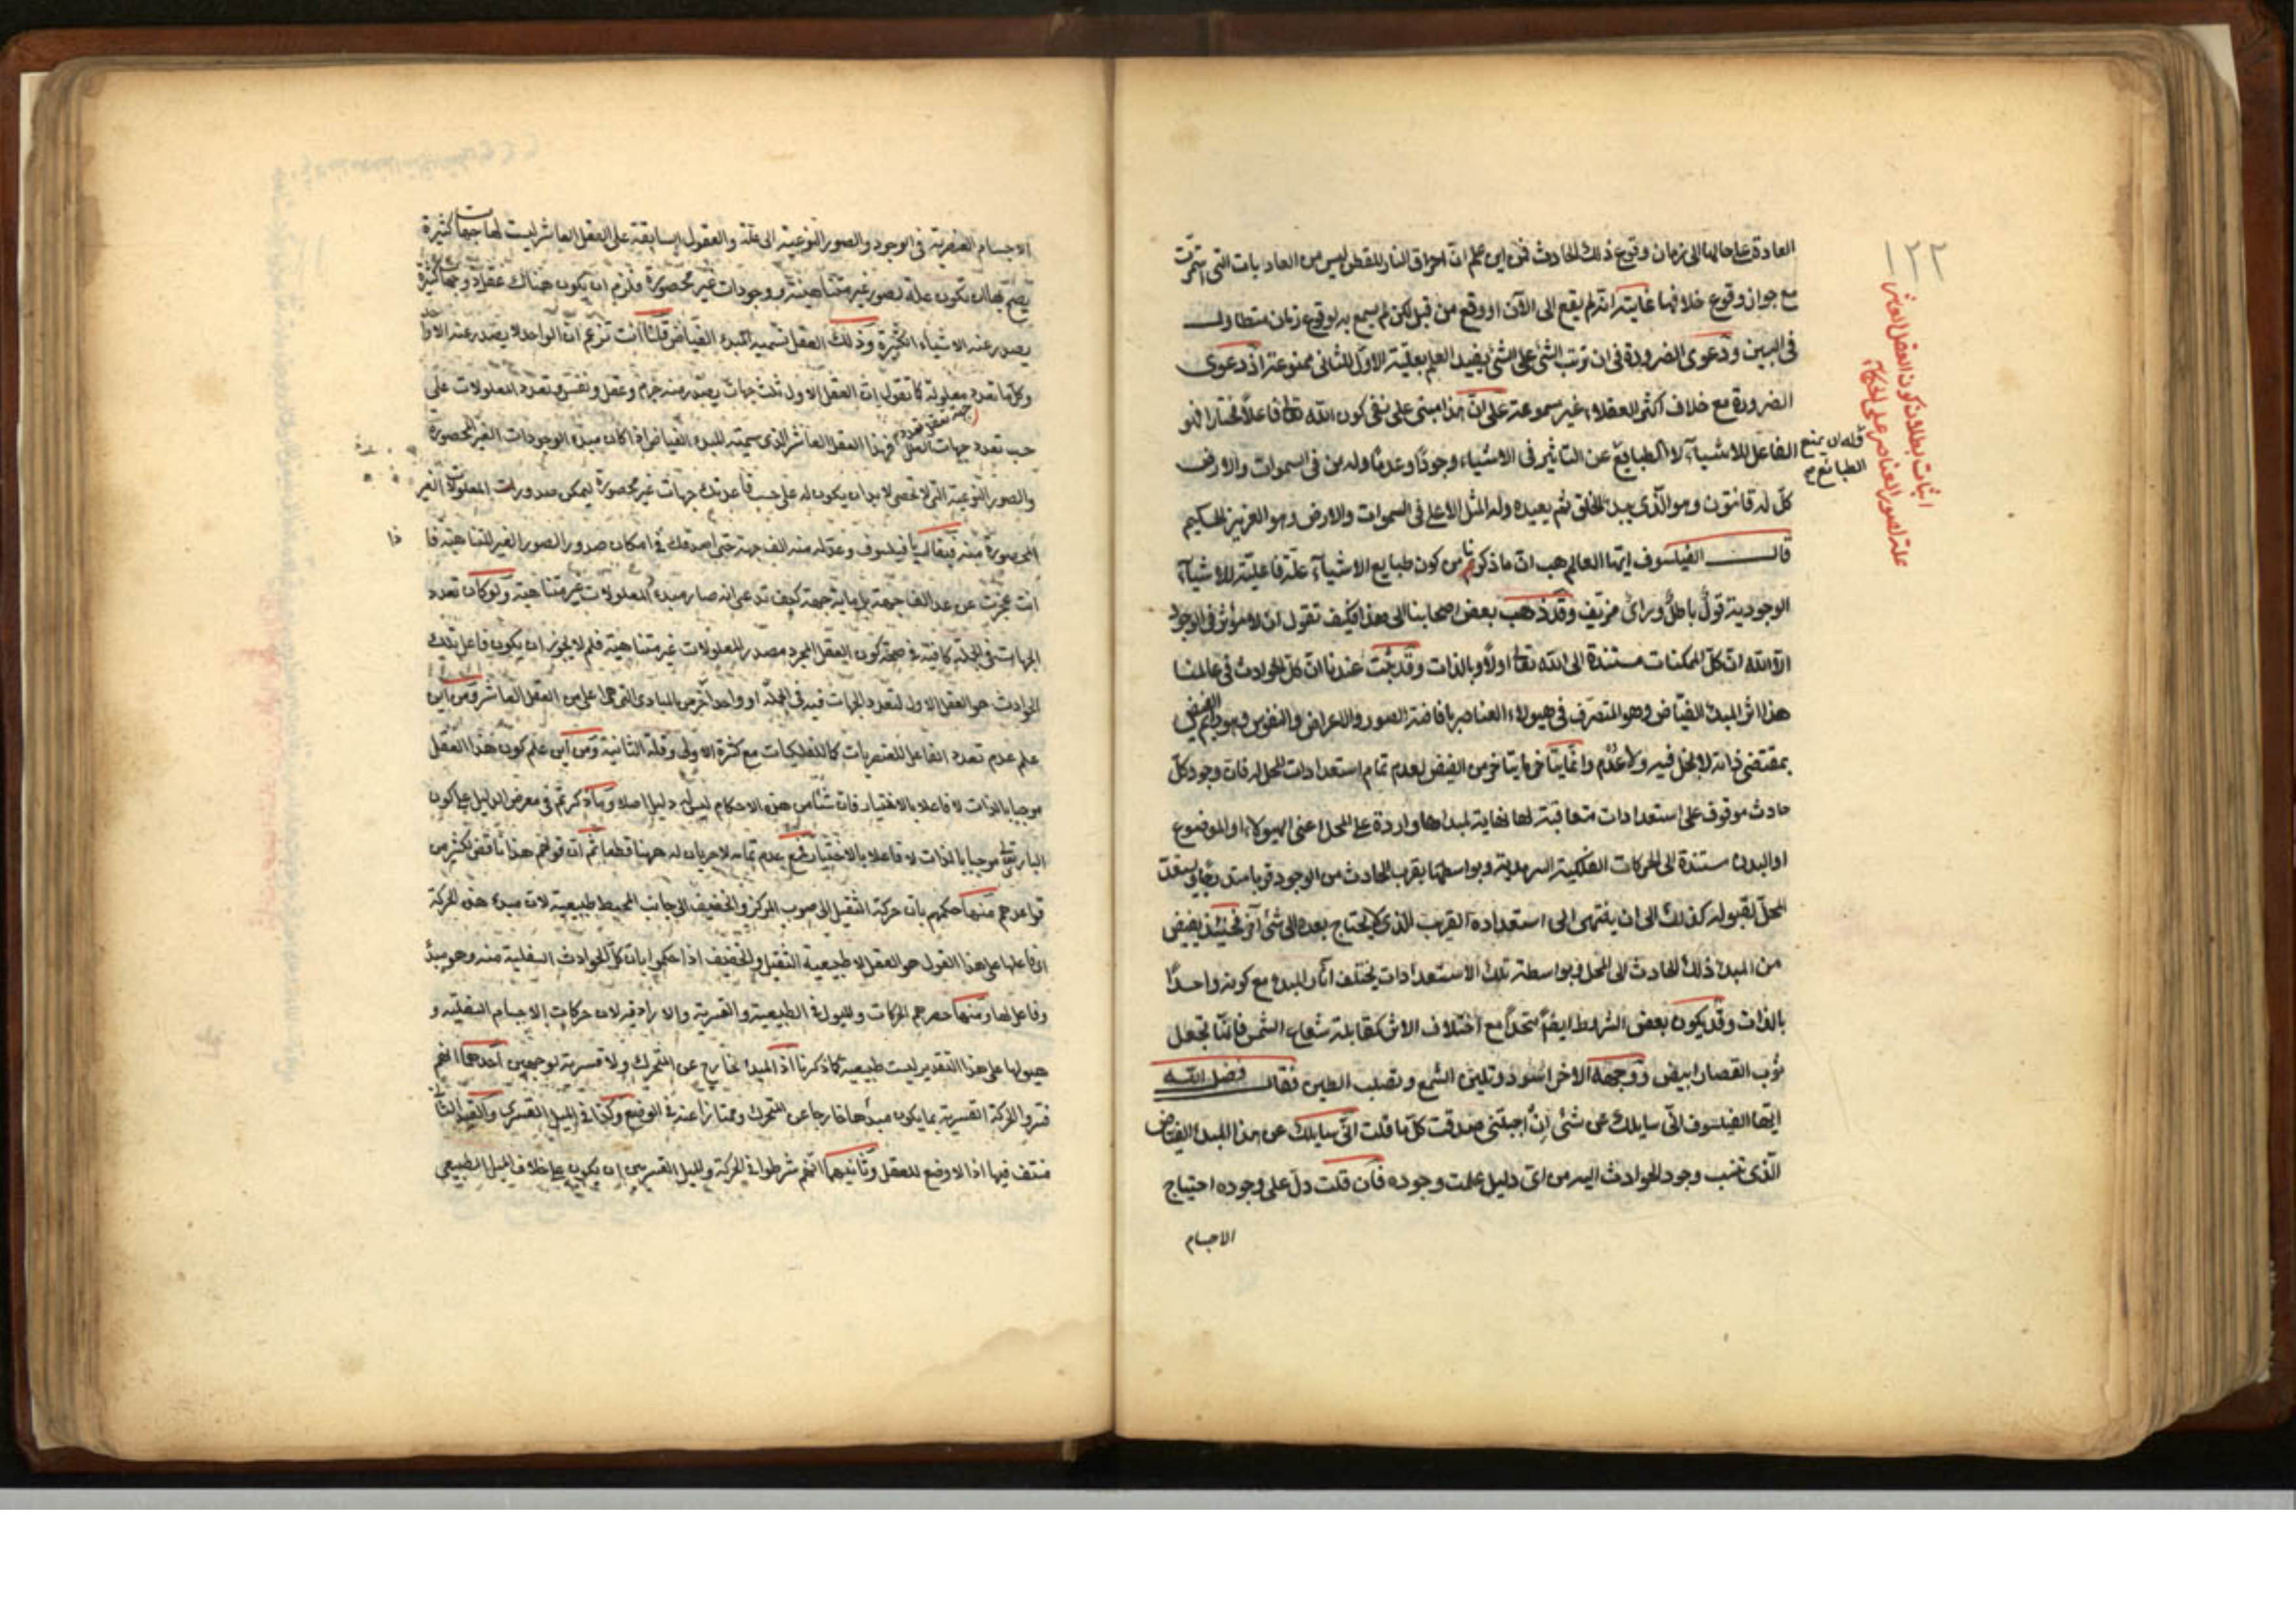 ١٢٢
اثبات بطلان كون العقل العاشر
علة لصور العناصر على الحكماء
العادة على حالها الى زمان وقوع ذلك الحادث فمن اين علم ان احراق النار للقطن ليس من العاديات التى استمرت
مع جواز وقوع خلافها غايته انه لم يقع الى الآن او وقع من قبل لكن لم يسمع به لوقوع زمان متطاول
فى البين ودعوى الضرورة فى ان ترتب الشئ على الشئ يفيد العلم بعلية الاول للثانى ممنوعة اذ دعوى
الضرورة مع خلاف اكثر العقلاء غير مسموعة على ان هذا مبنى على نفى كون الله تعالى فاعلا مختارا فهو
الفاعل للاشياء لا الطبايع عن التاثير فى الاشياء وجودا وعدما وله من فى السموات والارض
فله ان يمنع
الطبائع
كل له قانتون وهو الذى يبدئ الخلق ثم يعيده وله المثل الاعلى فى السموات والارض وهو العزيز الحكيم
قال الفيلسوف ايها العالم هب ان ما ذكرتم من كون طبايع الاشياء علة فاعلية للاشياء
الوجودية قول باطل ورائ مزيف وقد ذهب بعض اصحابنا الى هذا فكيف تقول ان لا مؤثر فى الوجود
الا الله ان كل الممكنات مستندة الى الله تعالى اولا وبالذات وقد ثبت عندنا ان كل الحوادث فى عالمنا
هذا اثر المبدئ الفياض وهو المتصرف فى هيولاء العناصر بافاضة الصور والاعراض والنفوس وهو دايم الفيض
بمقتضى ذاته لا بخل فيه ولا عدم وانما يتاخر ما يتاخر من الفيض لعدم تمام استعدادات المحل له فان وجود كل
حادث موقوف على استعدادات متعاقبة لها نهاية لمبداها واردة على المحل اعنى الهيولاء او الموضوع
او البدن مستندة الى الحركات الفلكية السرمدية وبواسطتها يقرب الحادث من الوجود قربا متدرجا ويستعد
المحل لقبوله كذلك الى ان ينتهى الى استعداده القريب الذى لا يحتاج بعده الى شئ آخر فحينئذ يفيض
من المبدئ ذلك الحادث الى المحل وبواسطة تلك الاستعدادات يختلف آثار المبدء مع كونه واحدا
بالذات وقد يكون بعض الشرايط ايضا متحدا مع اختلاف الاثر كمقابلة شعاع الشمس فانها تجعل
ثوب القصار ابيض ووجهه الاخر اسود وتلين الشمع وتصلب الطين فقال فضل الله
ايها الفيلسوف انى سايلك عن شئ ان اجبتنى صدقت كل ما قلت انى سايلك عن هذا المبدء الفياض
الذى تنسب وجود الحوادث اليه من اى دليل علمت وجوده فان قلت دل على وجوده احتياج
الاجسام
الاجسام العنصرية فى الوجود والصور النوعية الى علة والعقول السابقة على العقل العاشر ليست لها جهات كثيرة
يصح بها ان تكون علة لصور غير متناهية ووجودات غير محصورة فلزم ان يكون هناك عقل ذو جهات كثيرة
يصدر عنه الاشياء الكثيرة وذلك العقل نسميه المبدء الفياض قلنا انت تزعم ان الواحد لا يصدر عنه الا واحد
وكل ما تعدد معلوله كما تقول ان العقل الاول ثلث جهات يصدر منه جرم وعقل ونفس وتعدد المعلولات على
حسب تعدد جهات العلل فهذا العقل العاشر الذى سميته المبدء الفياض اذا كان مبدء الوجودات الغير المحصورة
والصور النوعية التى لا تحصى لا بد ان يكون له على حسب قاعدتك جهات غير محصورة ليمكن صدورات المعلولات الغير
المحصورة منه فيقال يا فيلسوف وعد له منه الف جهة حتى اصدقك فى امكان صدور الصور الغير المتناهية فا
ذا
انت عجزت عن عد الف جهة بل ماية جهة كيف تدعى انه صار مبدء المعلولات غير متناهية ولو كان تعدد
الجهات فى الجملة كافية فى صحة كون العقل المجرد مصدر المعلولات غير متناهية فلم لا يجوز ان يكون فاعل تلك
الحوادث هو العقل الاول لتعدد الجهات فيه فى الجملة او واحد آخر من المبادى التى هى اعلى من العقل العاشر ومن اين
علم عدم تعدد الفاعل للعنصريات كالفلكيات مع كثرة الاولى وقلة الثانية ومن اين علم كون هذا العقل
موجبا بالذات لا فاعلا بالاختيار فان شئا من هذه الاحكام ليس له دليل اصلا وما ذكرتم فى معرض الدليل على كون
البارى تعالى موجبا بالذات لا فاعلا بالاختيار فمع عدم تمامه لا جريان له ههنا قطعا ثم ان قولهم هذا ناقض لكثير من
قواعدهم منها حكمهم بان حركة الثقيل الى صوب المركز والخفيف الى جانب المحيط طبيعية لان مبدء هذه الحركة
او فاعلها على هذا القول هو العقل لا طبيعية الثقيل والخفيف اذا حكموا بان كل الحوادث السفلية منه وهو مبدء
وفاعل لها ومنها حصرهم الحركات والميول فى الطبيعية والقسرية والارادية لان حركات الاجسام السفلية و
ميولها على هذا التقدير ليست طبيعية كما ذكرنا اذ المبدء خارج عن المتحرك ولا قسرية لوجهين احدهما انهم
فسروا الحركة القسرية بما يكون مبدءها خارجا عن المتحرك وممتازا عنه فى الوضع وكذا فى الميل القسرى والقيد الثانى
منتف فيها اذ لا وضع للعقل وثانيهما انهم شرطوا فى الحركة والميل القسريين ان يكون على خلاف الميل الطبيعى